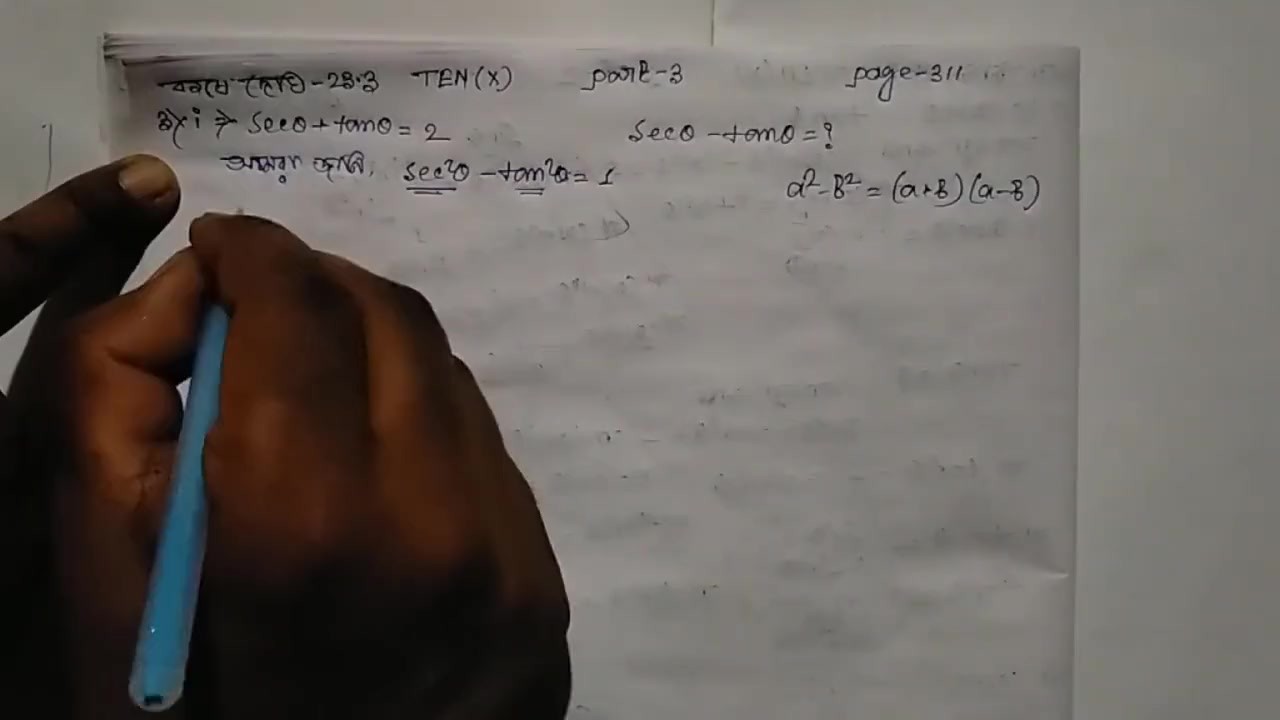 কষে দেখি-23.3 TEN(X) part-3 page-311
3) i ⇒ secθ+tanθ=2 secθ-tanθ=?
আমরা জানি, sec²θ-tan²θ=1 a²-b²=(a+b)(a-b)